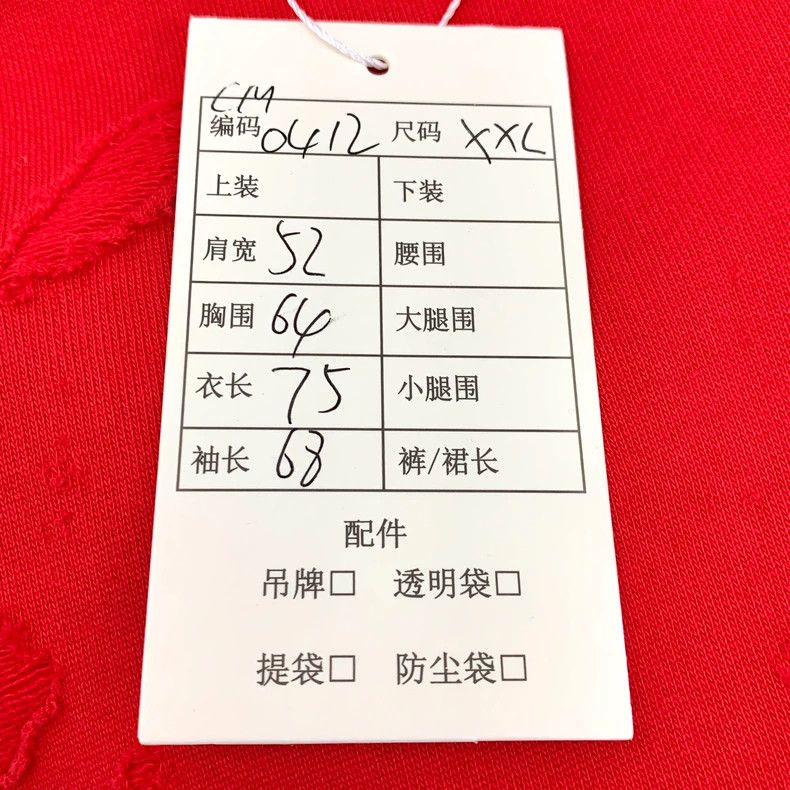 CM
编码 0412 尺码 XXL
上装 下装
肩宽 52 腰围
胸围 64 大腿围
衣长 75 小腿围
袖长 68 裤/裙长
配件
吊牌□ 透明袋□
提袋□ 防尘袋□